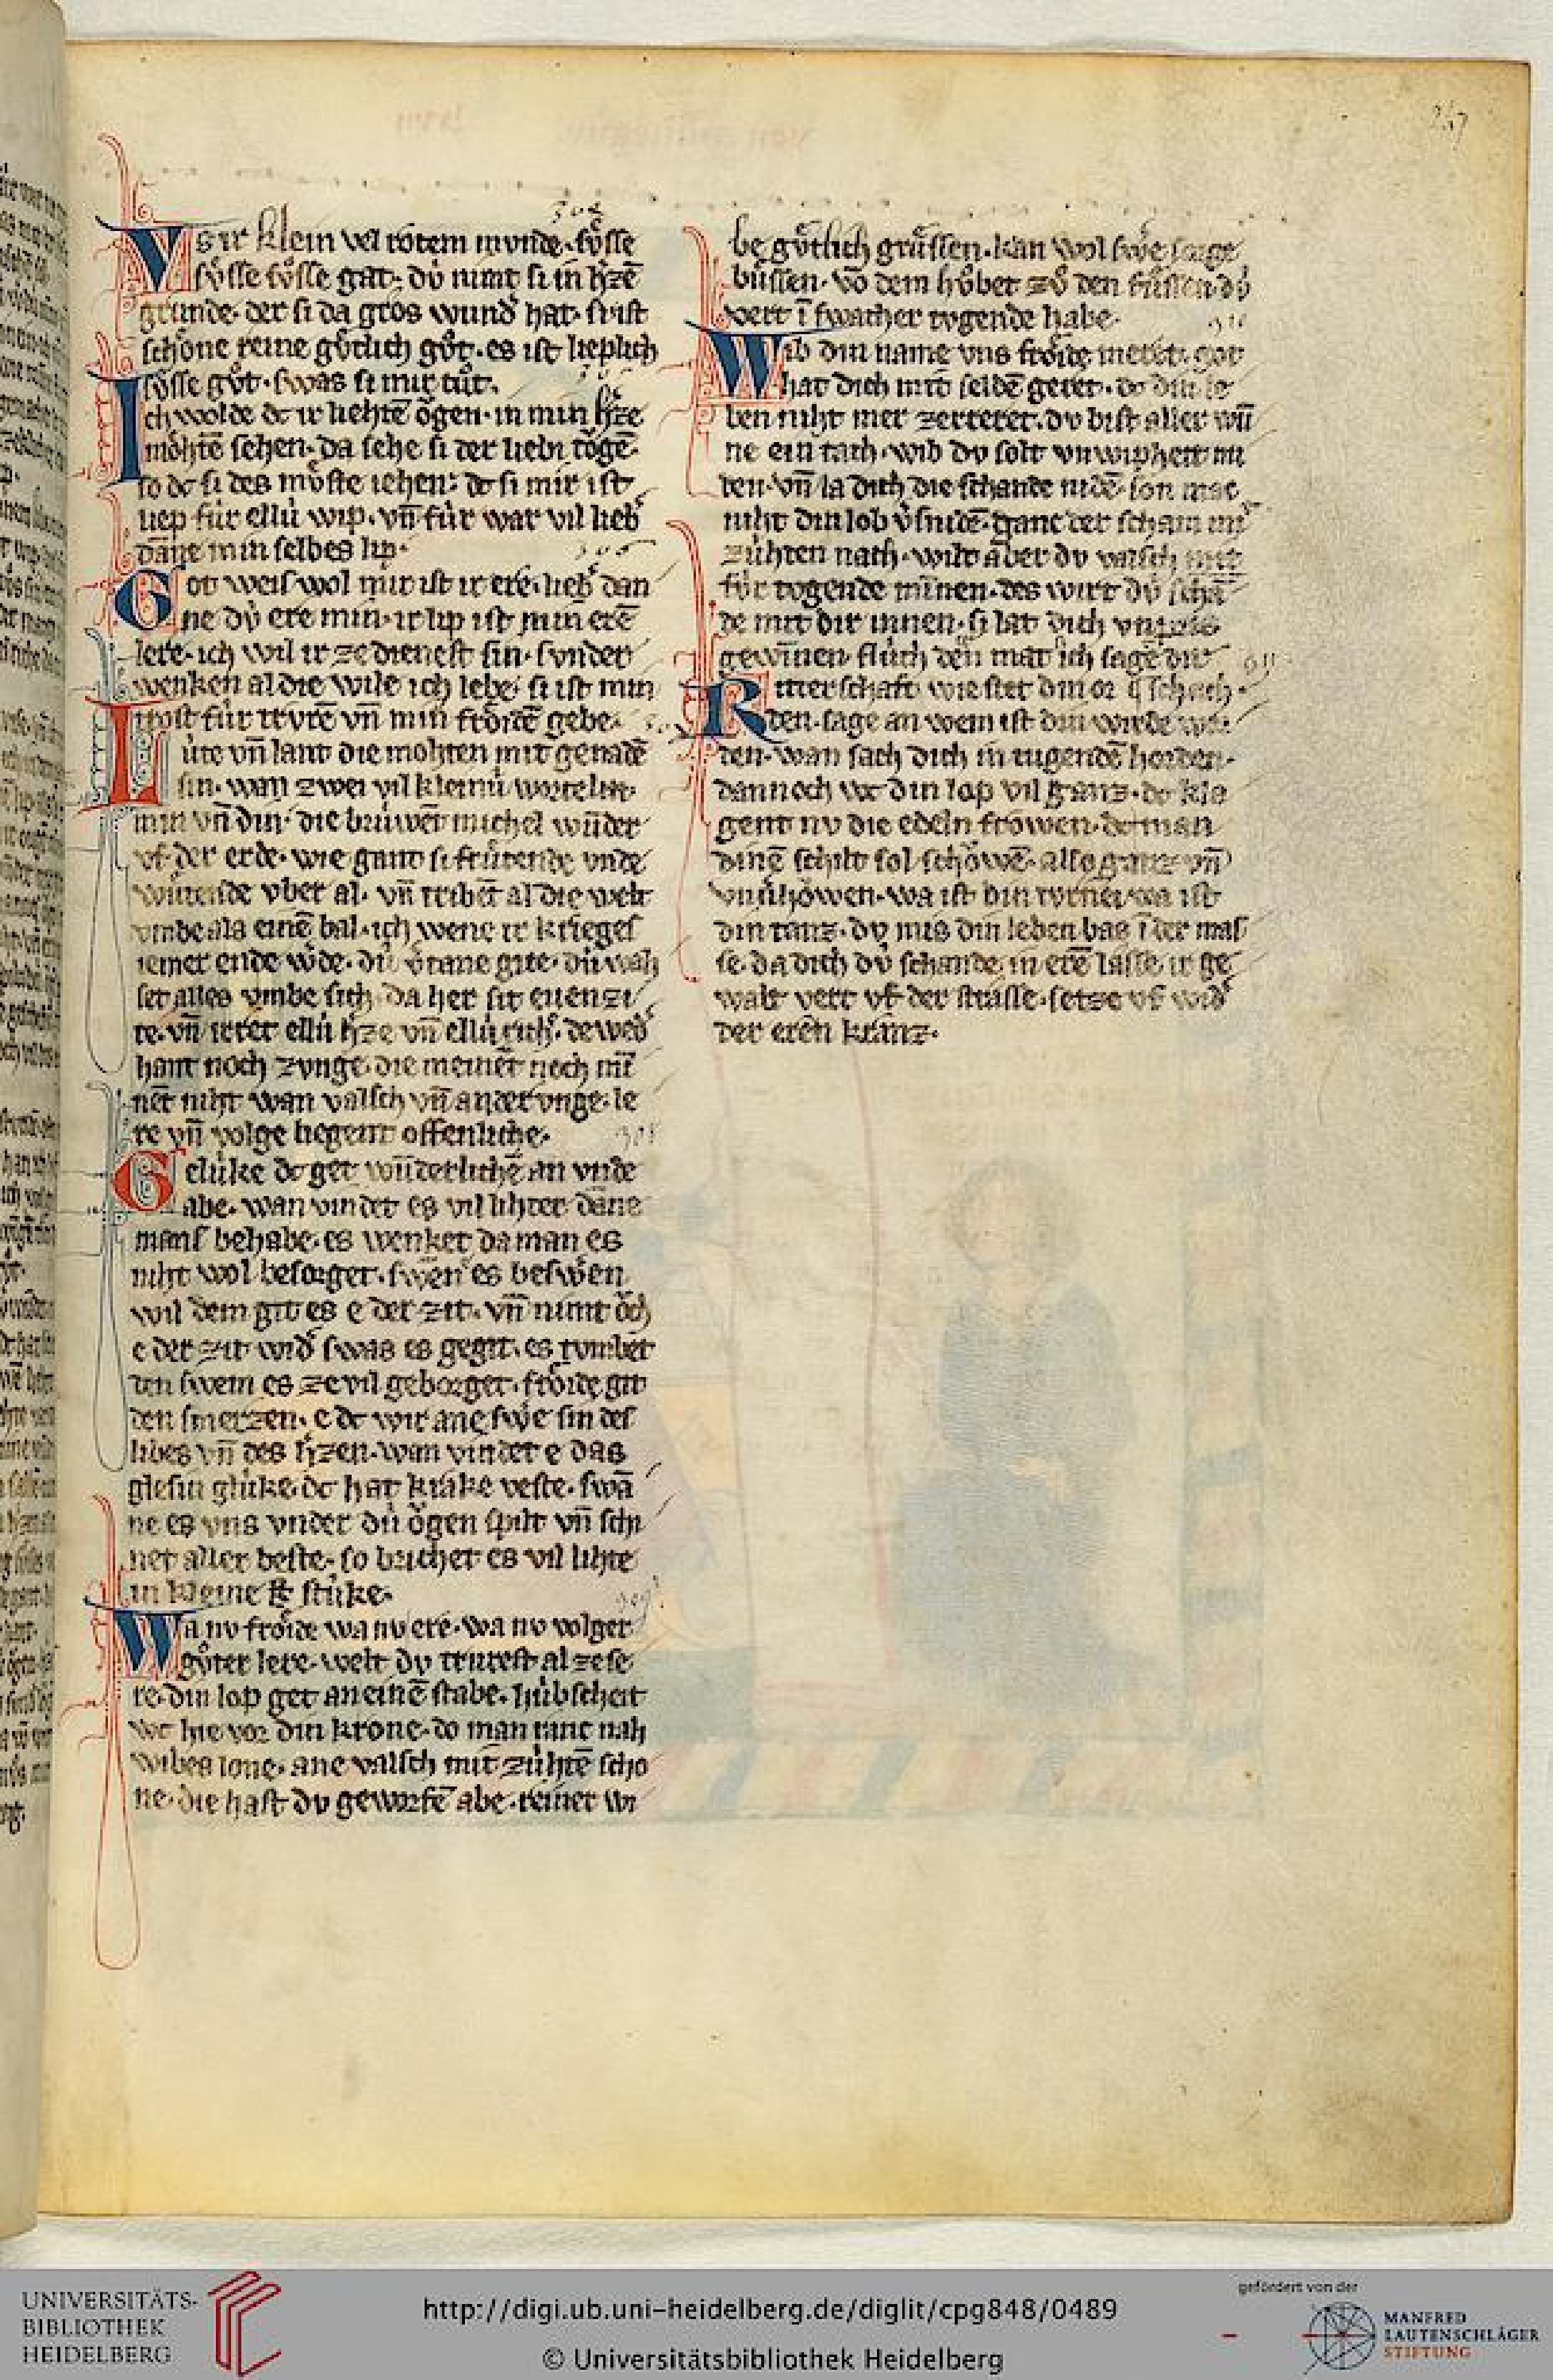 247
Vs ir klein vel rotem mvnde sv̊sse
sv̊sse sv̊sse gat dv̍ nimt si in h̾zē
grunde. der si da gros wund̾ hat. si ist
schone reine gu̍tlich gv̊t. es ist lieplich
sv̊sse gv̊t. swas si mir tůt.
Ich wolde dc ir liehtē ŏgen. in min h̾ze
mohtē sehen. da sehe si der liebi tŏgē.
so dc si des mv̊ste iehen. dc si mir ist
liep fu̍r ellu̍ wip. vn̄ fu̍r war vil lieb̾
dāne min selbes lip.
Got weis wol mir ist ir ere. lieb̾ dan
ne dv̍ ere min. ir lip ist min erē
lere. ich wil ir ze dienest sin. sunder
wenken al die wile ich lebe. si ist min
trost fu̍r trurē vn̄ min froͤidē gebe.
Lu̍te vn̄ lant die mohten mit genadē
sin. wan zwei vil kleinu̍ wortelin.
min vn̄ din. die bru̍wēt michel wūder
vf der erde. wie gant si fru̍tende vnde
wu̍tende vber al. vn̄ tribēt al die welt
vmbe als einē bal. ich wene ir krieges
iemer ende w̾de. du̍ v̾tane gite. du̍ wah
set alles vmbe sich. da her sit euen zi
te. vn̄ irret ellu̍ h̾ze vn̄ ellu̍ rich. dewed̾
hant noch zvnge. die meinēt noch mī
nēt niht wan valsch vn̄ anderunge. le
re vn̄ volge liegent offenliche.
Gelu̍ke dc get wūderlichē an vnde
abe. wan vindet es vil lihter dāne
mans behabe. es wenket da man es
niht wol besorget. swen es beswēn
wil dem git es e der zit. vn̄ nimt ŏch
e der zit wid̾ swas es gegit. es tvmbet
den swem es ze vil geborget. froͤide git
den smerzen. e dc wir ane swe̍ sin des
libes vn̄ des h̾zen. wan vindet e das
glesin glu̍ke. dc hat kranke veste. swā
ne es vns vnder du̍ ŏgen spilt vn̄ schi
net aller beste. so brichet es vil lihte
in kleine stu̍ke.
Wa nv froͤide wa nv ere. wa nv volger
gv̊ter lere. welt dv trurest al ze se
re. din lop get an einē stabe. hu̍bscheit
wc hie vor din krone. do man ranc nah
wibes lone. ane valsch mit zu̍htē scho
ne. die hast dv geworfē abe. reiner wi
be gu̍tlich gru̍ssen. kan wol swe̍ sorge
bu̍ssen. vō dem hŏbet zů den fu̍ssen. du̍
vert ī swacher tvgende habe.
Wib din name vns froͤide meret. got
hat dich mit seldē geret. dc din le
ben niht mer zerteret. dv bist aller wū
ne ein tach. wib dv solt vnwipheit mi
den. vn̄ la dich die schande nidē. son mac
niht din lob v̾snidē. ganc der scham mit
zu̍hten nach. wilt aber dv valsch mit
fu̍r tvgende minnen. des wirt dv̍ schā
de mit dir innen. si lat dich vnpris
gewinnen. flu̍ch den mat ich sage dir
Ritterschaft wie stet din or
den. sage an wem ist din wirde wor
den. wan sach dich in tugendē horden.
dannoch wc din lop vil ganz. dc kla
gent nv die edeln frŏwen. dc man
dinē schilt sol schŏwē. also ganz vn̄
vnu̍hŏwen. wa ist din tvrnei wa ist
din tanz. dv mis din leben bas ī der mas
se. da dich dv̍ schande in erē lasse. ir ge
walt vert vf der strasse. setze vf wid̾
der eren kranz.
UNIVERSITÄTS-
BIBLIOTHEK
HEIDELBERG
http://digi.ub.uni-heidelberg.de/diglit/cpg848/0489
© Universitätsbibliothek Heidelberg
gefördert von der
MANFRED
LAUTENSCHLÄGER
STIFTUNG